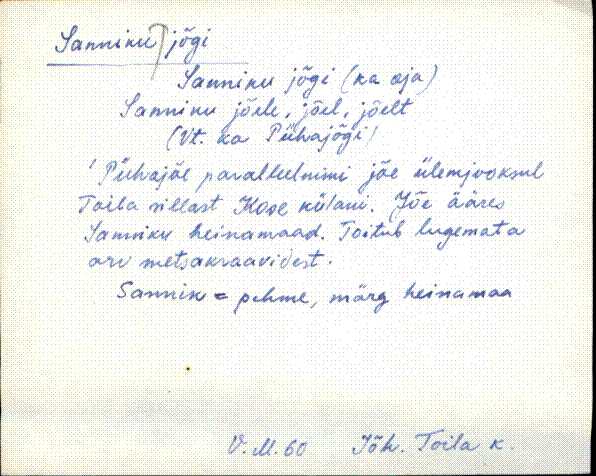 Sanniku jõgi
Sanniku jõgi (ka oja)
Sanniku jõele, jõel, jõelt
(Vt. ka Pühajõgi)
Pühajõe paralleelnimi jõe ülemjooksul
Toila sillast Kose külani. Jõe ääres
Sanniku heinamaad. Toitub lugemata
arv metsakraavidest.
Sannik = pehme, märg heinamaa
V. M. 60 Jõh. Toila k.